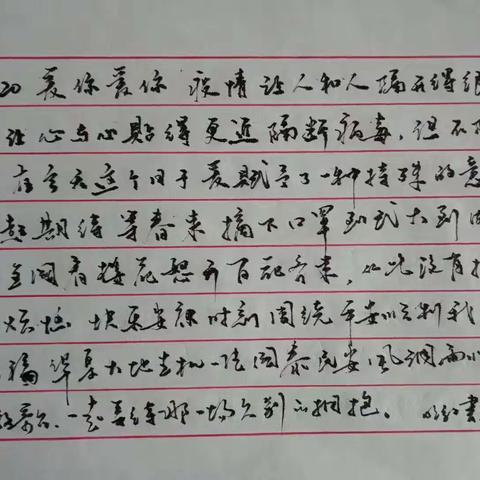 20 爱你爱你 疫情 让人和人隔开得很
让心与心贴得更近 隔断病毒，但不隔
在今天这个日子 爱赋予了一种特殊的意
起期待 等春来 摘下口罩 到武大到
全国看樱花怒开百花齐来，从此没有
烦恼 快乐安康时刻围绕 平安
福 华夏大地 一片 国泰民安 风调雨
一起等待那一场久别的拥抱。 书